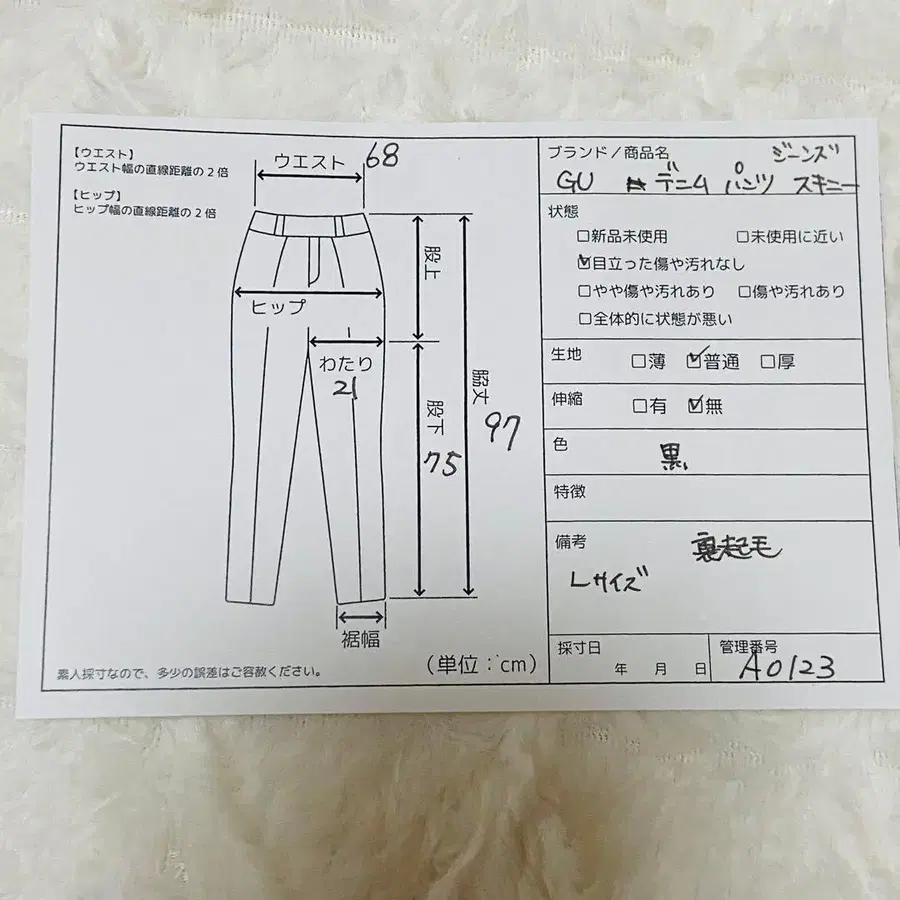 【ウエスト】
ウエスト幅の直線距離の2倍
【ヒップ】
ヒップ幅の直線距離の2倍
ウエスト 68
股上
ヒップ
わたり
21
股下
75
脇丈
97
裾幅
(単位:cm)
素人採寸なので、多少の誤差はご容赦ください。
ブランド/商品名 ジーンズ
GU デニム パンツ スキニー
状態
□新品未使用 □未使用に近い
☑目立った傷や汚れなし
□やや傷や汚れあり □傷や汚れあり
□全体的に状態が悪い
生地 □薄 ☑普通 □厚
伸縮 □有 ☑無
色 黒
特徴
備考 裏起毛
Lサイズ
採寸日
年 月 日
管理番号
A0123